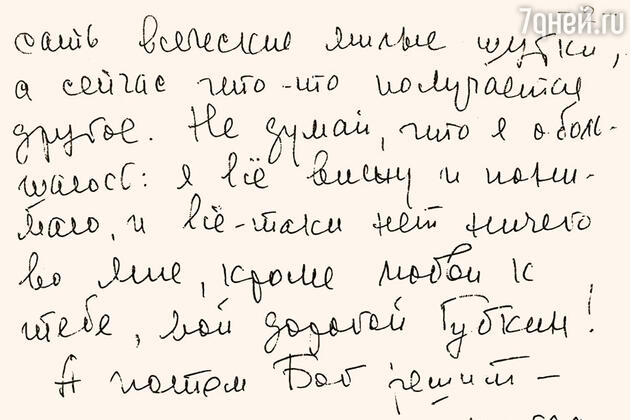 - 2 -
7дней.ru
сать всяческие милые шутки,
а сейчас что-что получается
другое. Не думай, что я оболь-
щаюсь: я всё вижу и пони-
маю, и всё-таки нет ничего
во мне, кроме любви к
тебе, мой дорогой Губкин!
А потом Бог решит –